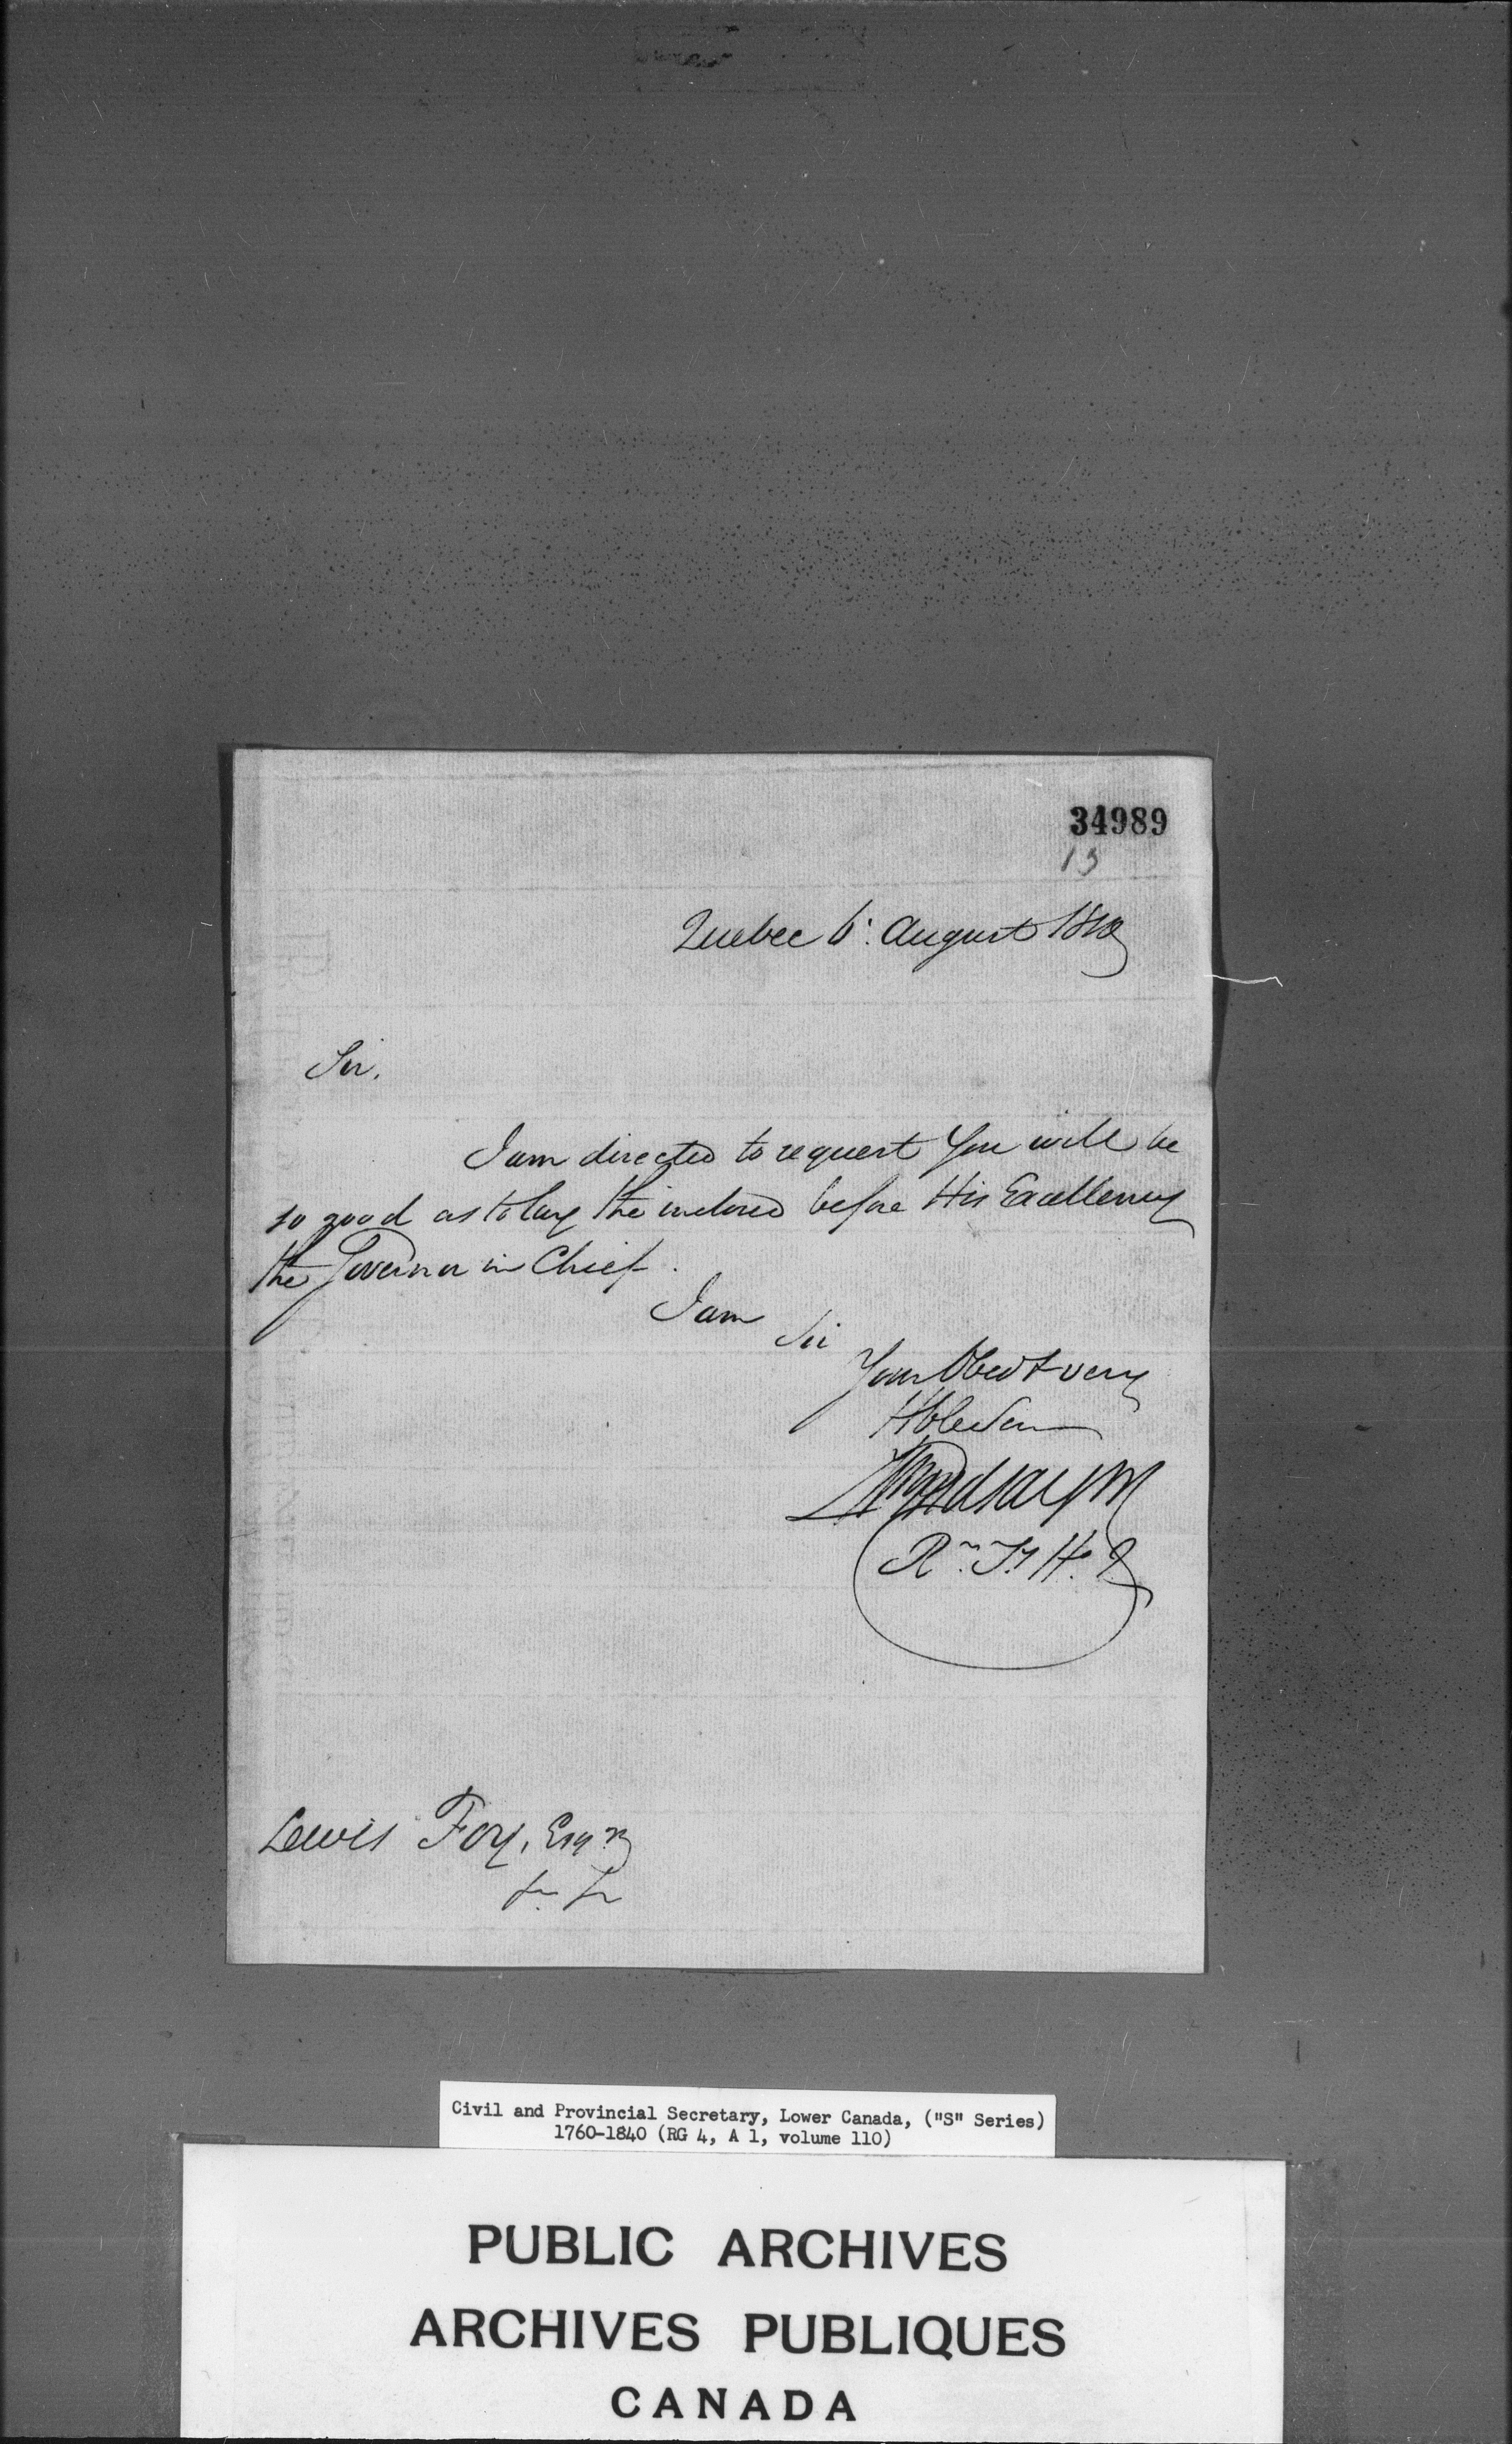 34989
13
Quebec 6: August 1812
Sir,
I am directed to request You will be
so good as to lay the inclosed before His Excellency
the Governor in Chief.
I am
Sir
Your Obedt very
Hble Serv
Lindsay
Lewis Foy, Esqr
Civil and Provincial Secretary, Lower Canada, ("S" Series)
1760-1840 (RG 4, A 1, volume 110)
PUBLIC ARCHIVES
ARCHIVES PUBLIQUES
CANADA